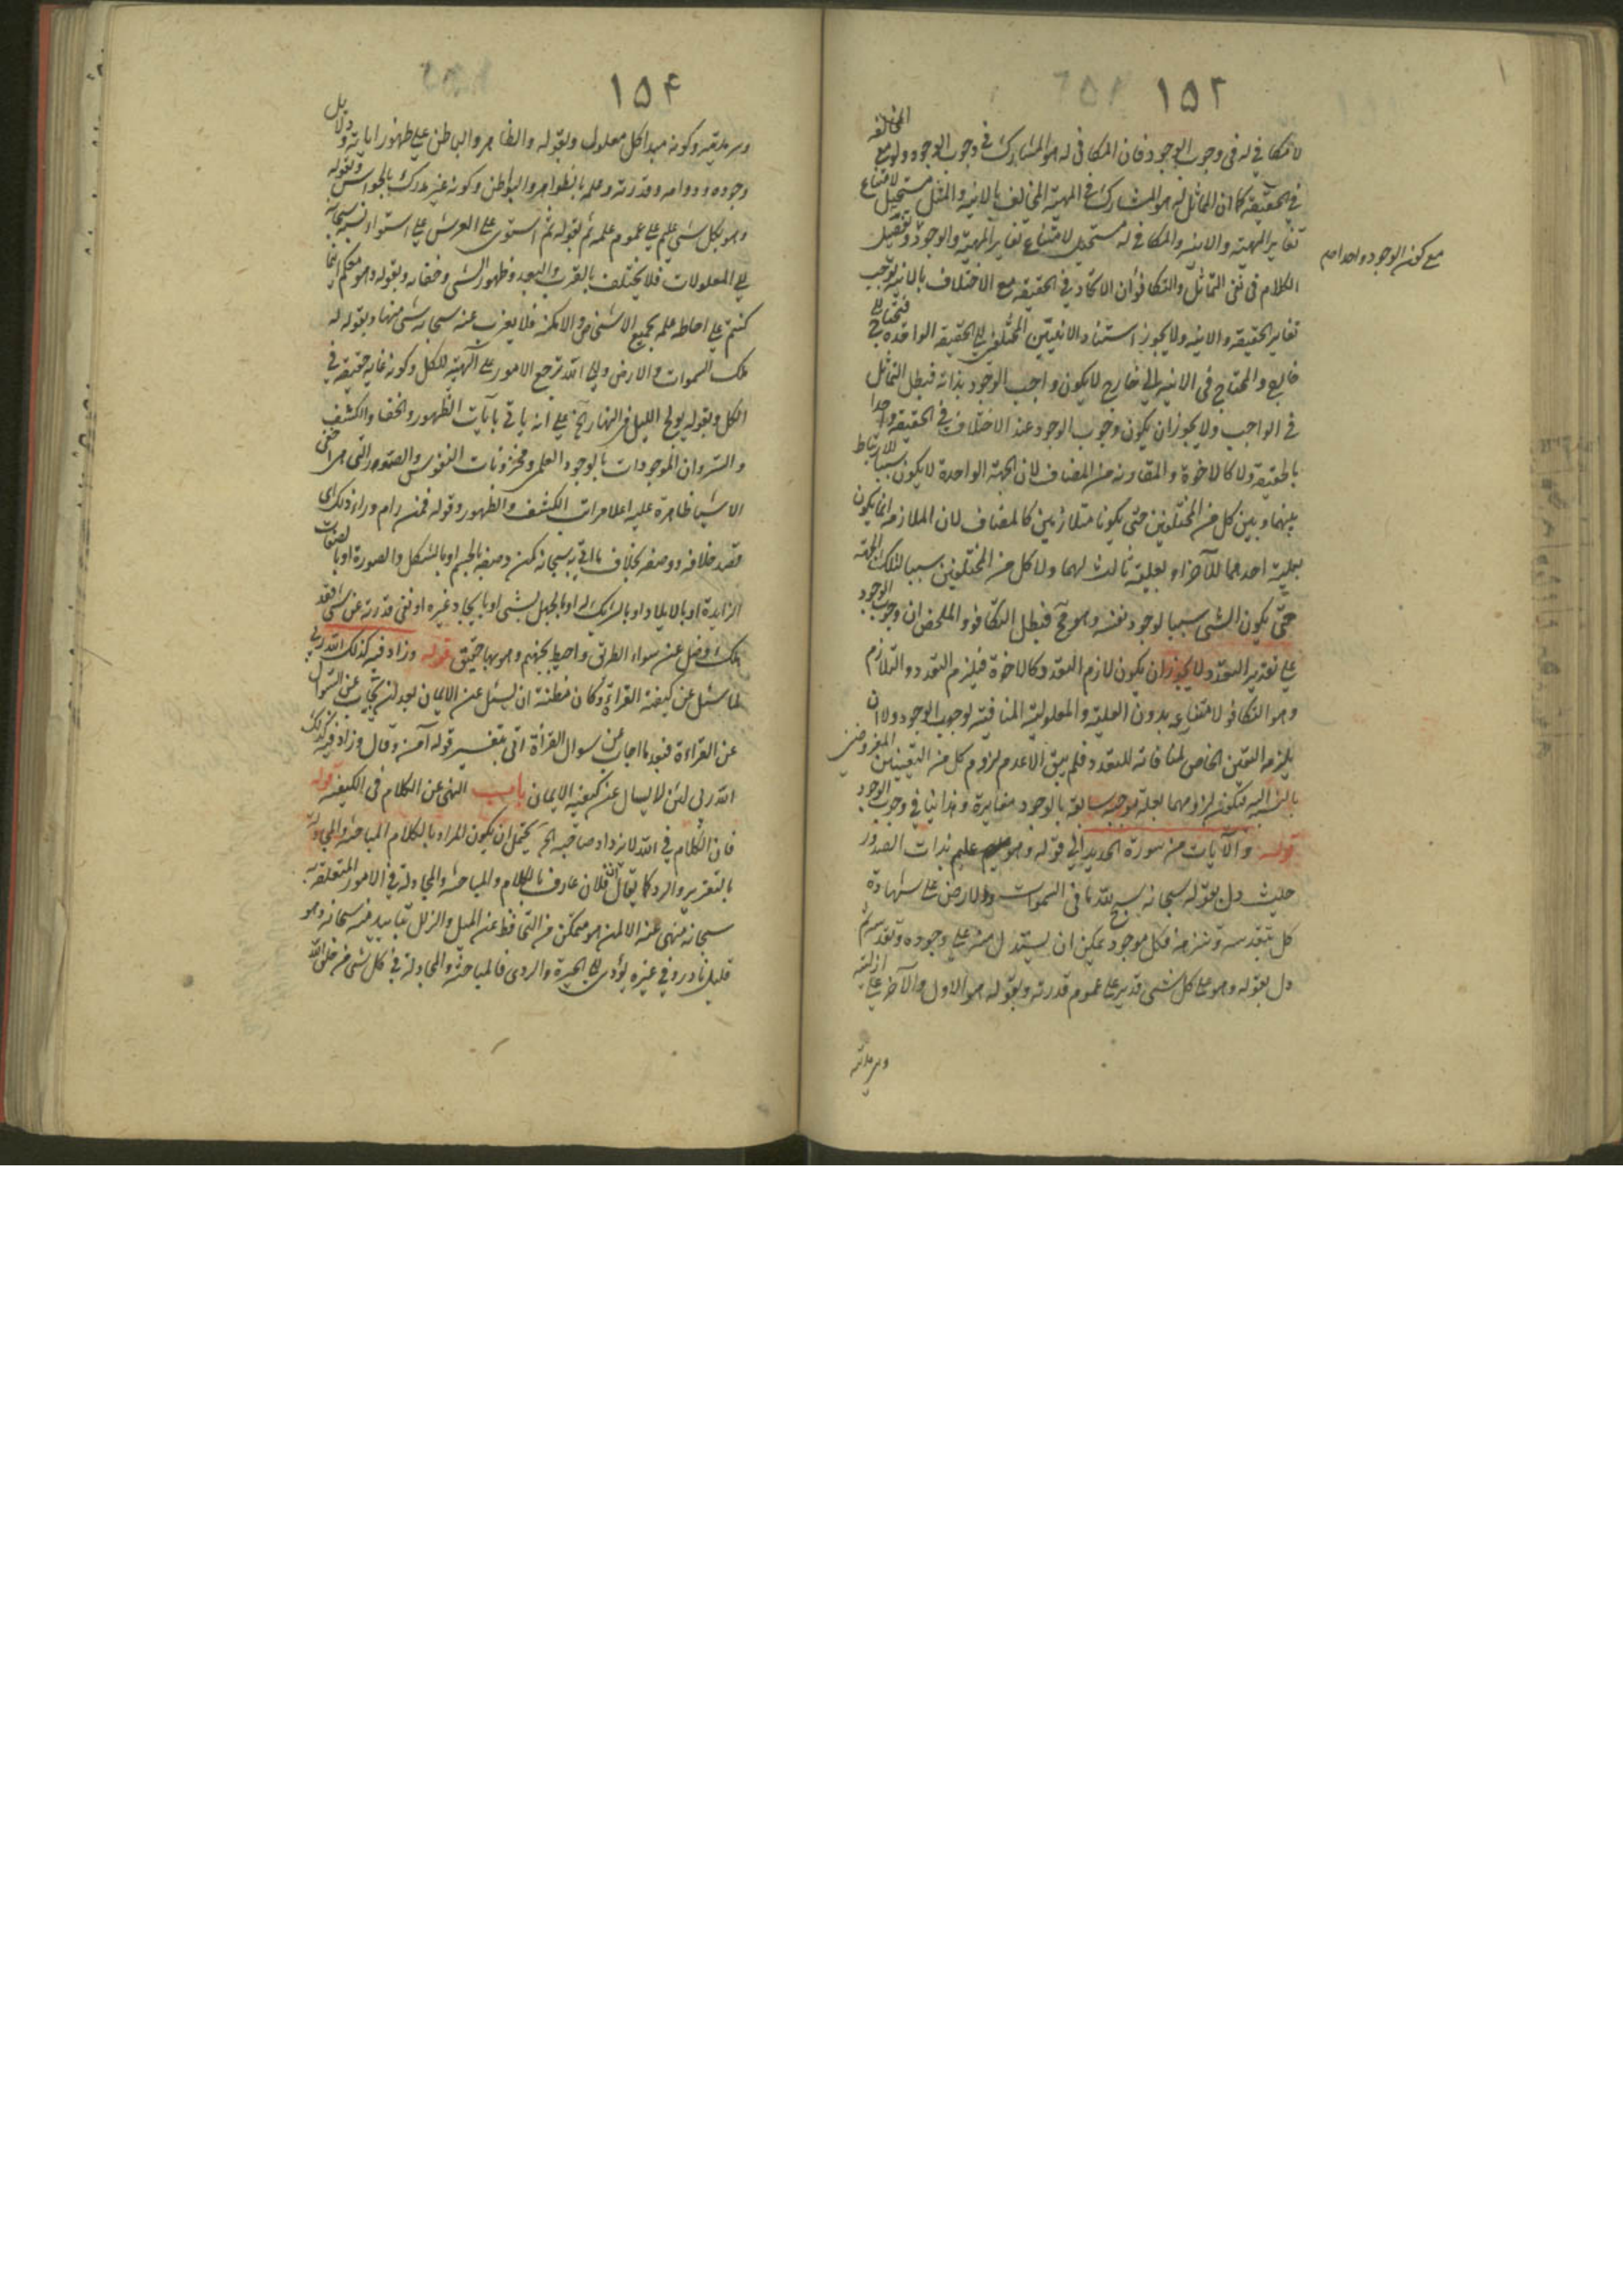 ١٥٢
لا مكافي له في وجوب الوجود فان المكافي له هو المشارك في وجوب الوجود ولو مع المخالفة
في الحقيقة كما ان المماثل له هو المشارك في المهية المخالف بالانية والمثل مستحيل لامتناع
تغاير المهية والانية والمكافي له مستحيل لامتناع تغاير المهية والوجود وتفصيل
مع كون الوجود واحدا
الكلام في نفي التماثل والتكافؤ ان الاتحاد في الحقيقة مع الاختلاف بالانية يوجب
تغاير الحقيقة والانية ولا يجوز استناد الانيتين المختلفتين الى الحقيقة الواحدة فتحتاج الى
خارج والمحتاج في الانية الى خارج لا يكون واجب الوجود بذاته فبطل التماثل
في الواجب ولا يجوز ان يكون وجوب الوجود عند الاختلاف في الحقيقة واحدا
بالحقيقة ولا كالاخوة والمقارنة من المضاف لان الجهة الواحدة لا يكون سببا للارتباط
بينهما وبين كل من المختلفين حتى يكونا متلازمين كالمضاف لان الملازمة انما يكون
بعلية احدهما للآخر او بعلية ثالث لهما ولا كل من المختلفين سببا لتلك الجهة
حتى يكون الشئ سببا لوجود نفسه وهو مح فبطل التكافؤ والملخص ان وجوب الوجود
على تقدير التعدد ولا يجوز ان يكون لازم التعدد كالاخوة فيلزم التعدد والتلازم
وهو التكافؤ لامتناعه بدون العلية والمعلولية المنافية لوجوب الوجود ولا ان
يلزمه التعين الخاص لمنافاته للتعدد فلم يبق الا عدم لزوم كل من التعينين المفروضين
بالنسبة اليه فتكون لزومهما بعلة موجبة سابقة بالوجود مغايرة وهذا ينافي وجوب الوجود
قوله والآيات من سورة الحديد الى قوله وهو عليم بذات الصدور
حيث دل بقوله سبحانه سبح لله ما في السموات والارض على شهادة
كل بتقدسه وتنزهه فكل موجود يمكن ان يستدل منه على وجوده وتقدسه ثم
دل بقوله وهو على كل شئ قدير على عموم قدرته وبقوله هو الاول والآخر على ازليته
وسرمديته
١٥٤
وسرمديته وكونه مبدا كل معلول وبقوله والظاهر والباطن على ظهور اياته ودلايل
وجوده ودوامه وقدرته وعلمه بالظواهر والبواطن وكونه غير مدرك بالحواس وبقوله
وهو بكل شئ عليم على عموم علمه ثم بقوله ثم استوى على العرش على استواء نسبته سبحانه
الى المعلولات فلا يختلف بالقرب والبعد وظهور الشئ وخفائه وبقوله وهو معكم اينما
كنتم على احاطة علمه بجميع الاشخاص والامكنة فلا يعزب عنه سبحانه شئ منها وبقوله له
ملك السموات والارض والى الله ترجع الامور على آلهيته للكل وكونه غاية حقيقة في
الكل وبقوله يولج الليل في النهار آلخ على انه ياتي بآيات الظهور والخفا والكشف
والستر وان الموجودات بالوجود العلمي ومخزونات النفوس والصدور التي هي اخفى
الاشيا ظاهرة عليه اعلى مراتب الكشف والظهور وقوله فمن رام وراء ذلك اي
قصد خلافه ووصفه بخلاف ما اتى به سبحانه كمن وصفه بالجسم او بالشكل والصورة او بالصفات
الزايدة او بالايلاد او بالشريك له او بالجهل بشئ او بايجاد غيره او نفى قدرته عن شئ فقد
هلك وضل عن سواء الطريق واحيط بجهنم وهو بها حقيق قوله وزاد فيه كذلك الله ربي
لما سئل عن كيفية القراءة وكان مظنة ان يسئل عن الايمان بعد ان يجاب عن السؤال
عن القراءة فبعد ما اجاب عن سوال القرأة اتى بتفسير قوله آمن وقال وزاد فيه كذلك
الله ربي لئن لا يسال عن كيفية الايمان باب النهي عن الكلام في الكيفية قوله
فان الكلام في الله لا يزداد صاحبه الخ يحتمل ان يكون المراد بالكلام المباحثة والمجادلة
بالتقرير والرد كما يقال ان فلان عارف بالكلام والمباحثة والمجادلة في الامور المتعلقة به
سبحانه منهى عنه الا لمن هو متمكن من التحافظ عن الميل والزلل بتاييد منه سبحانه وهو
قليل نادر وفي غيره يؤدى الى الحيرة والردى فالمباحثة والمجادلة في كل شئ من خلق الله